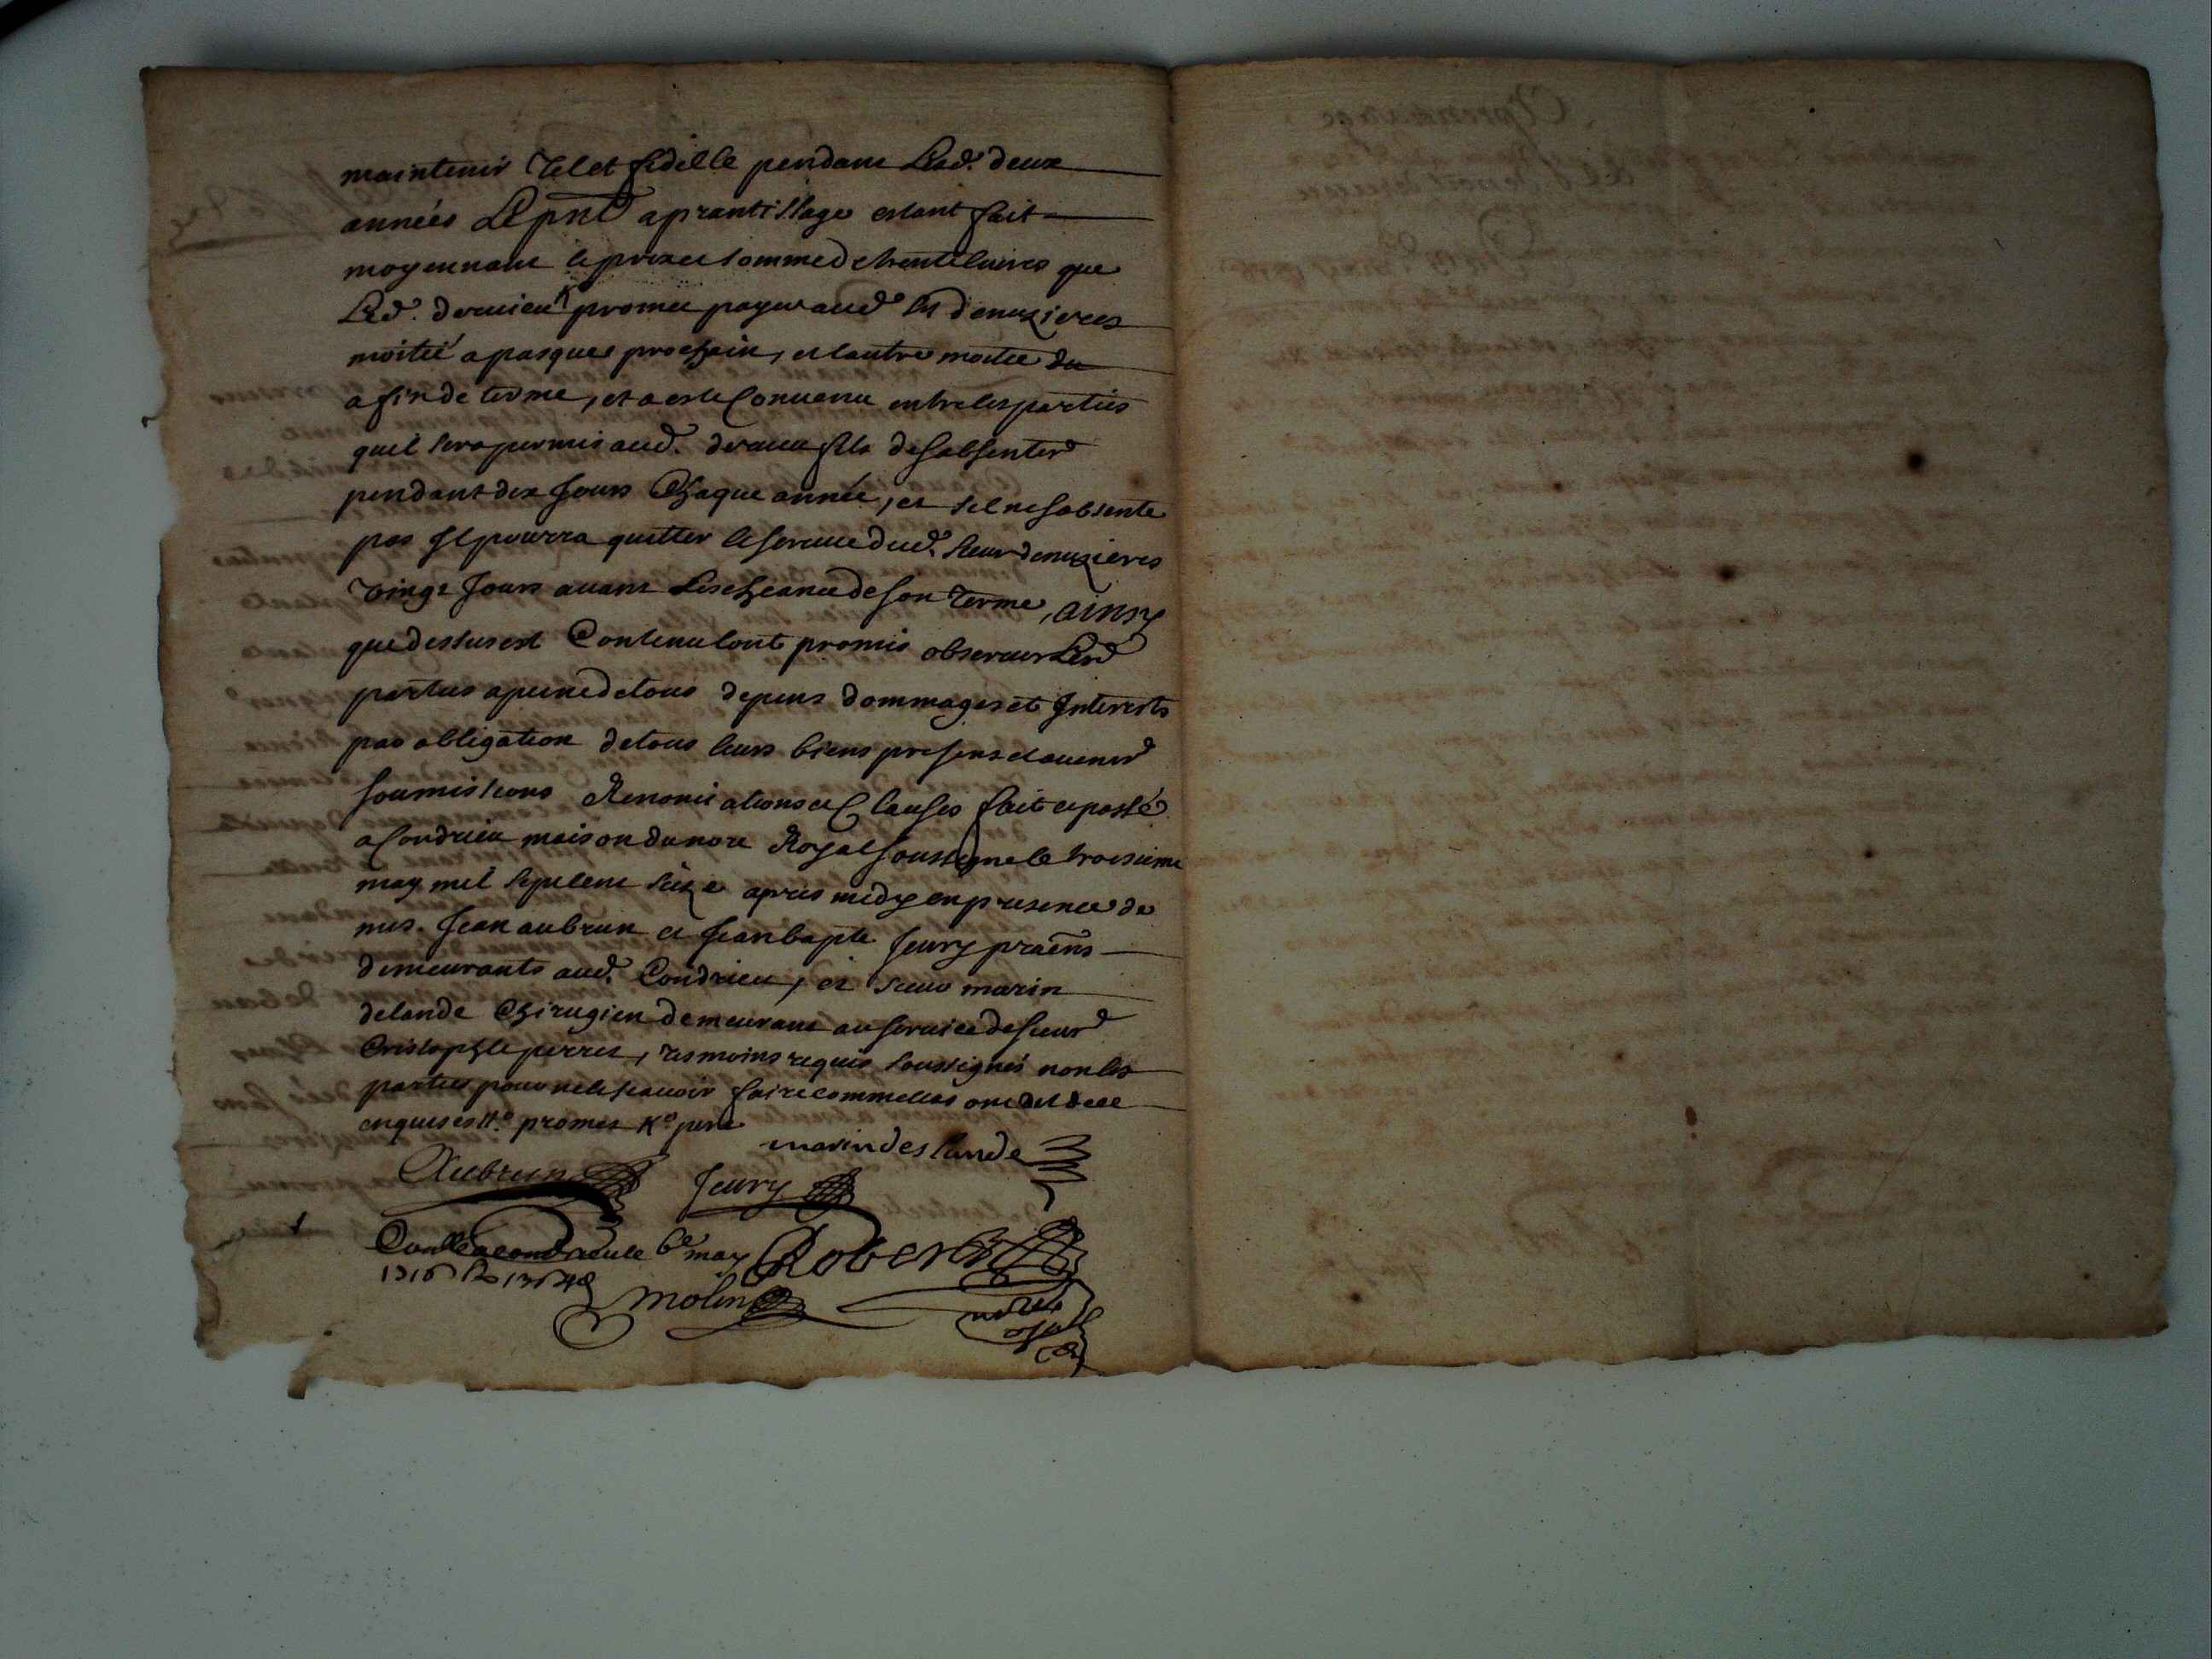 maintenir tel et fidelle pendant Lesd. deux
années Le pnt aprantissage estant fait
moyennant le prix et somme de trente livres que
Led. dervieu promet payer aud. sr denuzieres
moitié a pasques prochain, et lautre moitie du
a fin de terme, et a este Convenu entre les parties
quil sera permis aud. dervieu fils de sabsenter
pendant dix Jours Chaque année, et sil ne sabsente
pas Il pourra quitter le service dud. sieur denuzieres
vingt Jours avant Lescheance de son terme, ainsy
que dessus est Contenu lont promis observer Lesd
parties a peine de tous depens dommages et Interests
par obligation de tous leurs biens presens et avenir
soumissions Renonciations et Clauses fait et passé
a Condrieu maison du nore Royal soussigne le troisieme
may mil sept cent seize apres midy en presence de
mes. Jean aubrun et Jean bapte Jeury praens
demeurants aud. Condrieu, et sieur marin
delande Chirugien demeurant au service de sieur
Cristophle perret, tesmoins requis soussignés non les
parties pour ne le scavoir faire comme elles ont dit de ce
enquises et
marin des lande
Aubrun Jeury
Conlle a condrieu le 6e may Robert
1716
molin